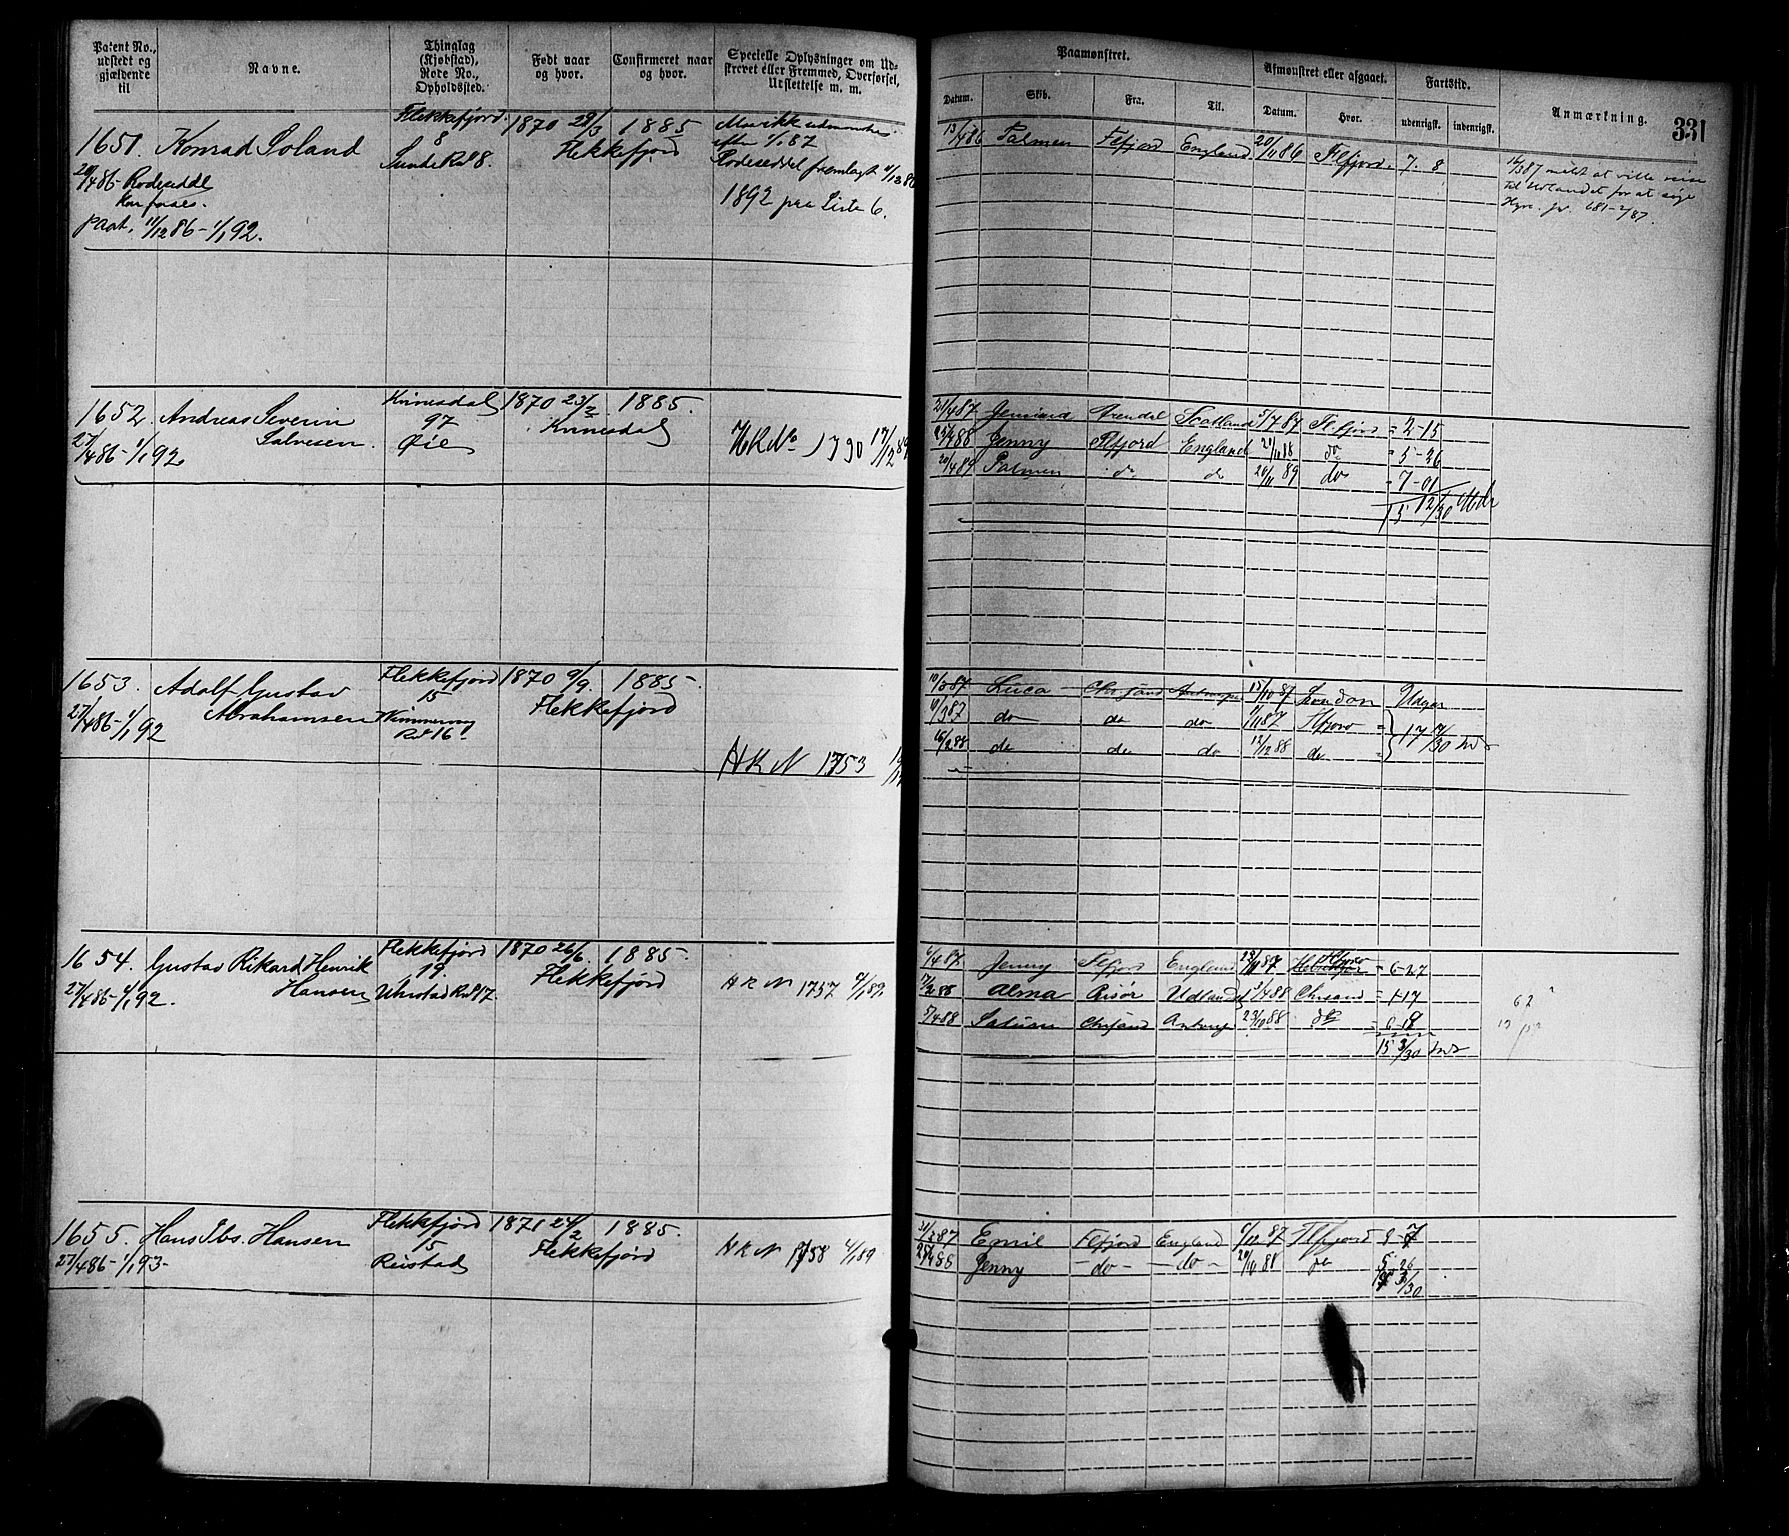 Patent No., udstedt og gjældende til
Navne.
Thinglag (Kjøbstad), Rode No., Opholdssted.
Født naar og hvor.
Confirmeret naar og hvor.
Specielle Oplysninger om Udskrevet eller Fremmed, Overførsel, Udslettelse m. m.
Paamønstret.
Datum.
Skib.
Fra.
Til.
Afmønstret eller afgaaet.
Datum.
Hvor.
Fartstid.
udenrigsk.
indenrigsk.
Anmærkning.
331
1651. Konrad Soland
Flekkefjord 8
1870 29/3 1885
Flekkefjord
Sunde Rd. 8.
efter 1/1 87
Rodeseddel fremlagt 11/12 86
1892 paa Liste 6.
29/4 86- Rodeseddel
11/12 86-1/1 92.
13/4 86 Palmen Flfjord England 20/11 86 Flfjord. 7. 8
14/3 87 meldt at ville reise til Udlandet for at søge Hyre. jr. 681-2/87.
1652. Andreas Severin Salvesen.
27/4 86-1/1 92.
Kvinesdal 97 Øie
1870 23/2 1885.
Kvinesdal
HKNo 1730 17/12 89
21/4 87 Arendal Scotland 5/7 87 Flfjord = 2-15
25/4 88 Jenny Flfjord England 21/10 88 do = 5-26
20/4 89 Palmen do do 20/11 89 do - 7-01
15 12/30 Mdr
1653. Adolf Gustav Abrahamsen
27/4 86-1/1 92
Flekkefjord 15
Rd. 16
1870 9/9 1885-
Flekkefjord
HKN 1753
10/3 87 Luca Chrsand Antwerpen 15/10 87 London
do do do 11/11 87 Flfjord
16/2 88 do do do 12/12 88 do
1654. Gustav Rikard Henrik Hansen
27/4 86-1/1 92.
Flekkefjord 19.
Uhrstad Rd. 17.
1870 26/6 1885-
Flekkefjord
HKN 1757 4/1 89.
6/4 87 Jenny Flfjord England 28/11 87 Flfjord = 6-27
17/2 88 Alma Risør Udlandet 4/4 88 Chrsand = 1-17
5/4 88 Saturn Chrsand Antwerp 23/10 88 do = 6-18
15 3/30
62
1655. Hans Ibs. Hansen
27/4 86-1/1 93-
Flekkefjord 15
Reistad
1871 24/2 1885.
Flekkefjord
HKN 1758 4/1 89
31/3 87 Emil Flfjord England 6/12 87 Flfjord 8-7
25/4 88 Jenny - do - - do - 20/10 88 do 5-26
3/30